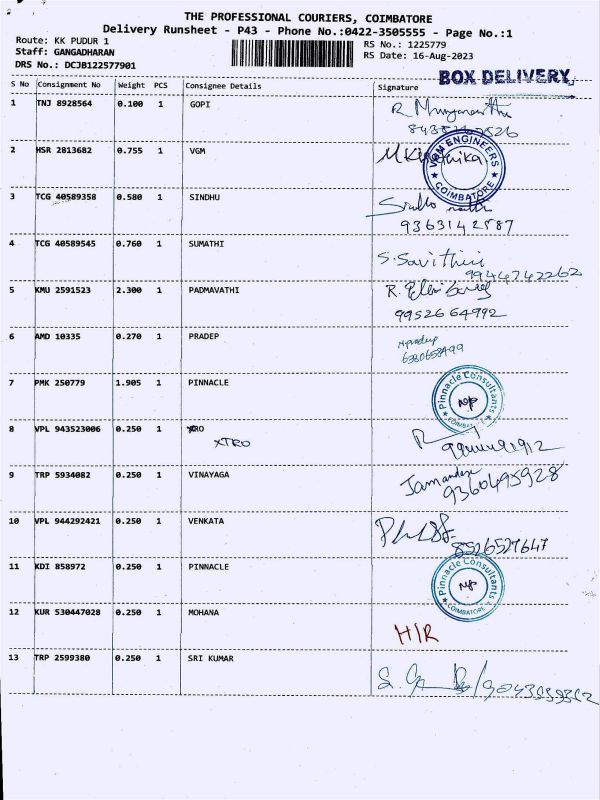 THE PROFESSIONAL COURIERS, COIMBATORE
Delivery Runsheet - P43 - Phone No.:0422-3505555 - Page No.:1
Route: KK PUDUR 1
RS No.: 1225779
Staff: GANGADHARAN
RS Date: 16-Aug-2023
DRS No.: DCJB122577901
BOX DELIVERY
S No Consignment No Weight PCS Consignee Details Signature
1 TNJ 8928564 0.100 1 GOPI
2 HSR 2813682 0.755 1 VGM
VGM ENGINEERS COIMBATORE
3 TCG 40589358 0.580 1 SINDHU
9363142587
4 TCG 40589545 0.760 1 SUMATHI S. Savithiri
9944742262
5 KMU 2591523 2.300 1 PADMAVATHI
9952664992
6 AMD 10335 0.270 1 PRADEP
6380658499
7 PMK 250779 1.905 1 PINNACLE Pinnacle Consultants COIMBATORE
8 VPL 943523006 0.250 1
XTRO
9 TRP 5934082 0.250 1 VINAYAGA
9360495928
10 VPL 944292421 0.250 1 VENKATA
8526527647
11 KDI 858972 0.250 1 PINNACLE Pinnacle Consultants COIMBATORE
12 KUR 530447028 0.250 1 MOHANA H/R
13 TRP 2599380 0.250 1 SRI KUMAR